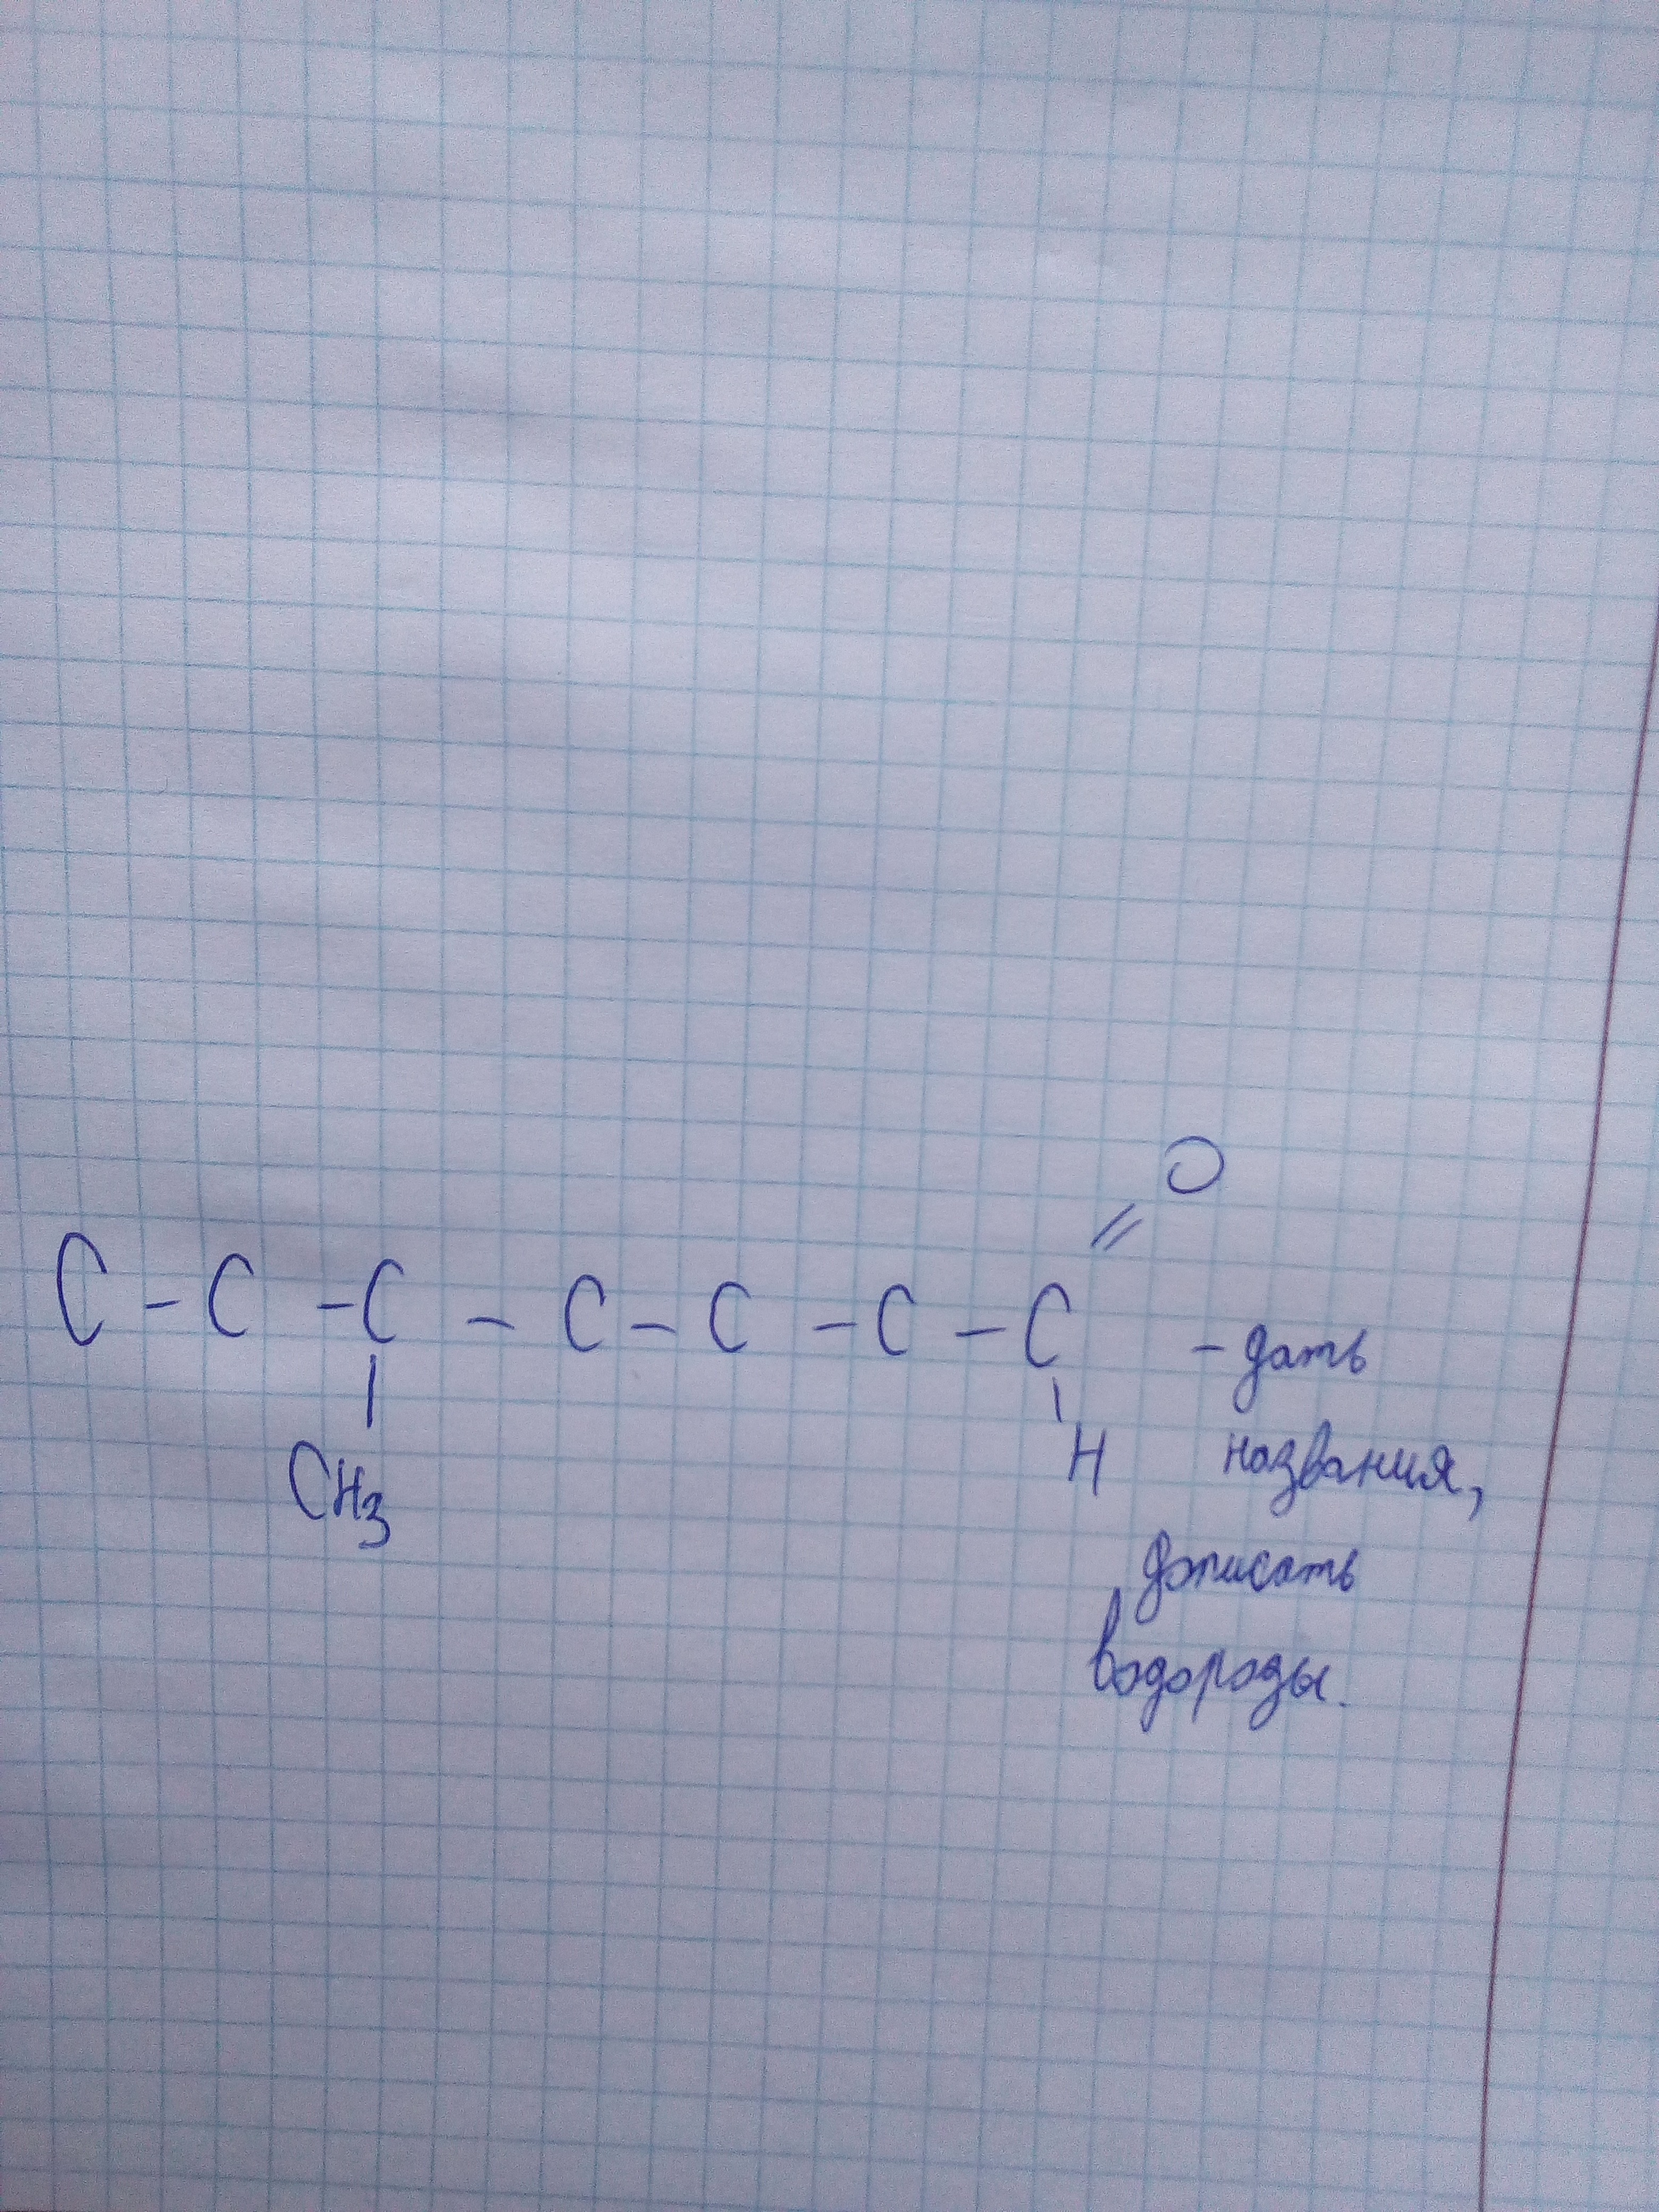 O
//
C - C - C - C - C - C - C - дать
| \
CH3 H названия,
дописать
водороды.